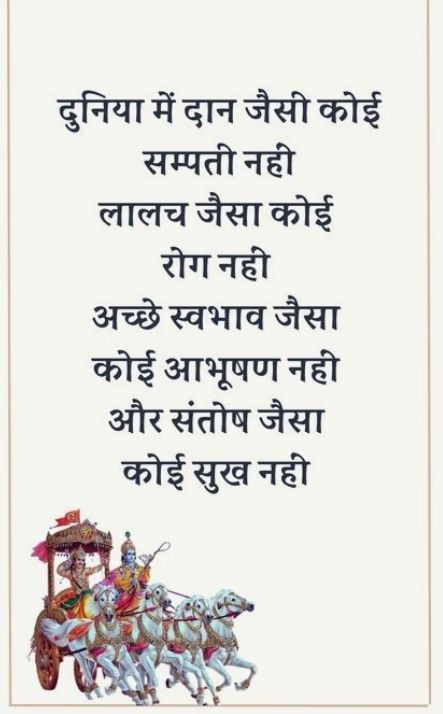 दुनिया में दान जैसी कोई
सम्पती नही
लालच जैसा कोई
रोग नही
अच्छे स्वभाव जैसा
कोई आभूषण नही
और संतोष जैसा
कोई सुख नही